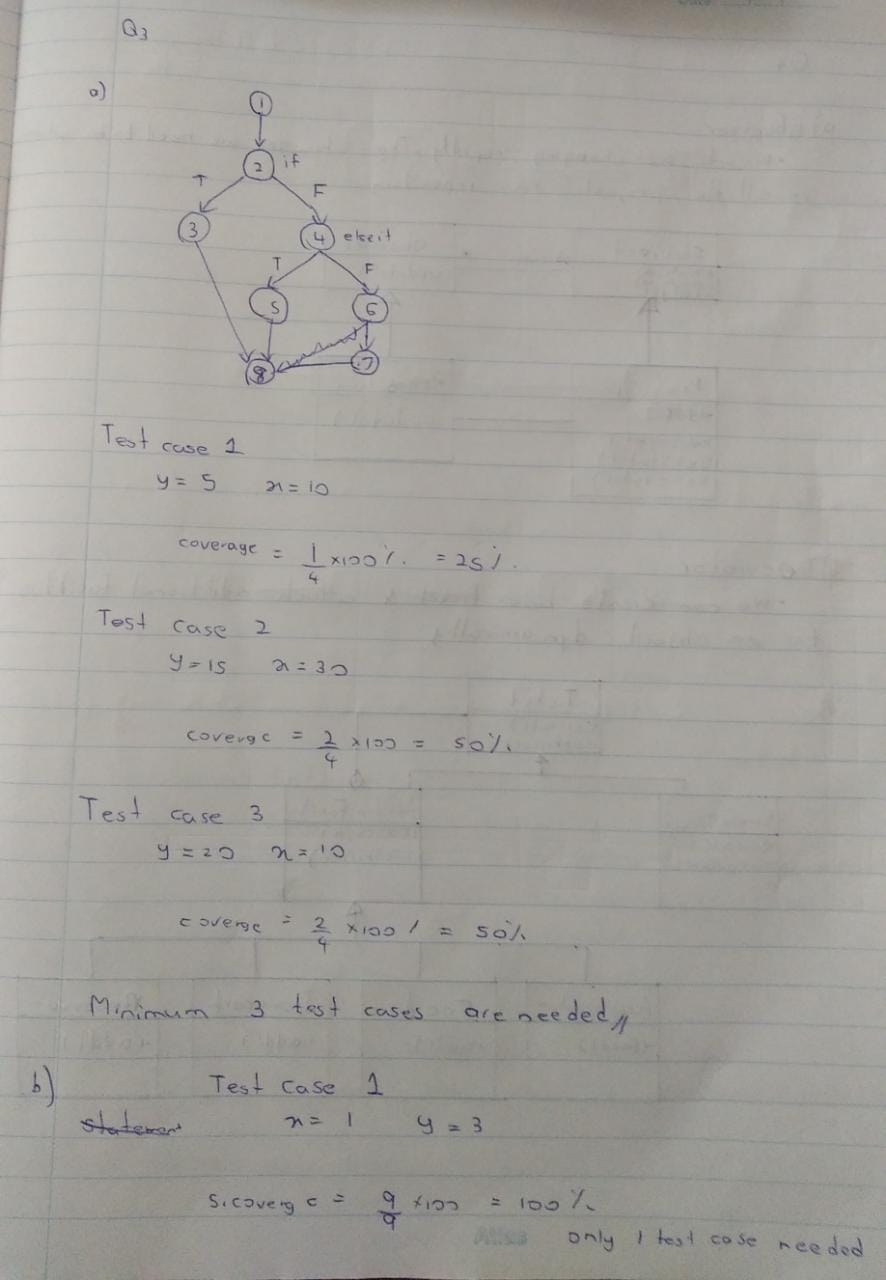 Q3
a)
1
2 if
T F
3 4 elseif
T F
5 6
8 7
Test case 1
y = 5 x = 10
coverage = 1/4 × 100 % = 25 %.
Test case 2
y = 15 x = 30
coverge = 2/4 × 100 = 50 %.
Test case 3
y = 20 x = 10
coverge = 2/4 × 100 % = 50 %
Minimum 3 test cases are needed //
b) Test case 1
statement x = 1 y = 3
S. coverge = 9/9 × 100 = 100 %
only 1 test case needed
Atlas